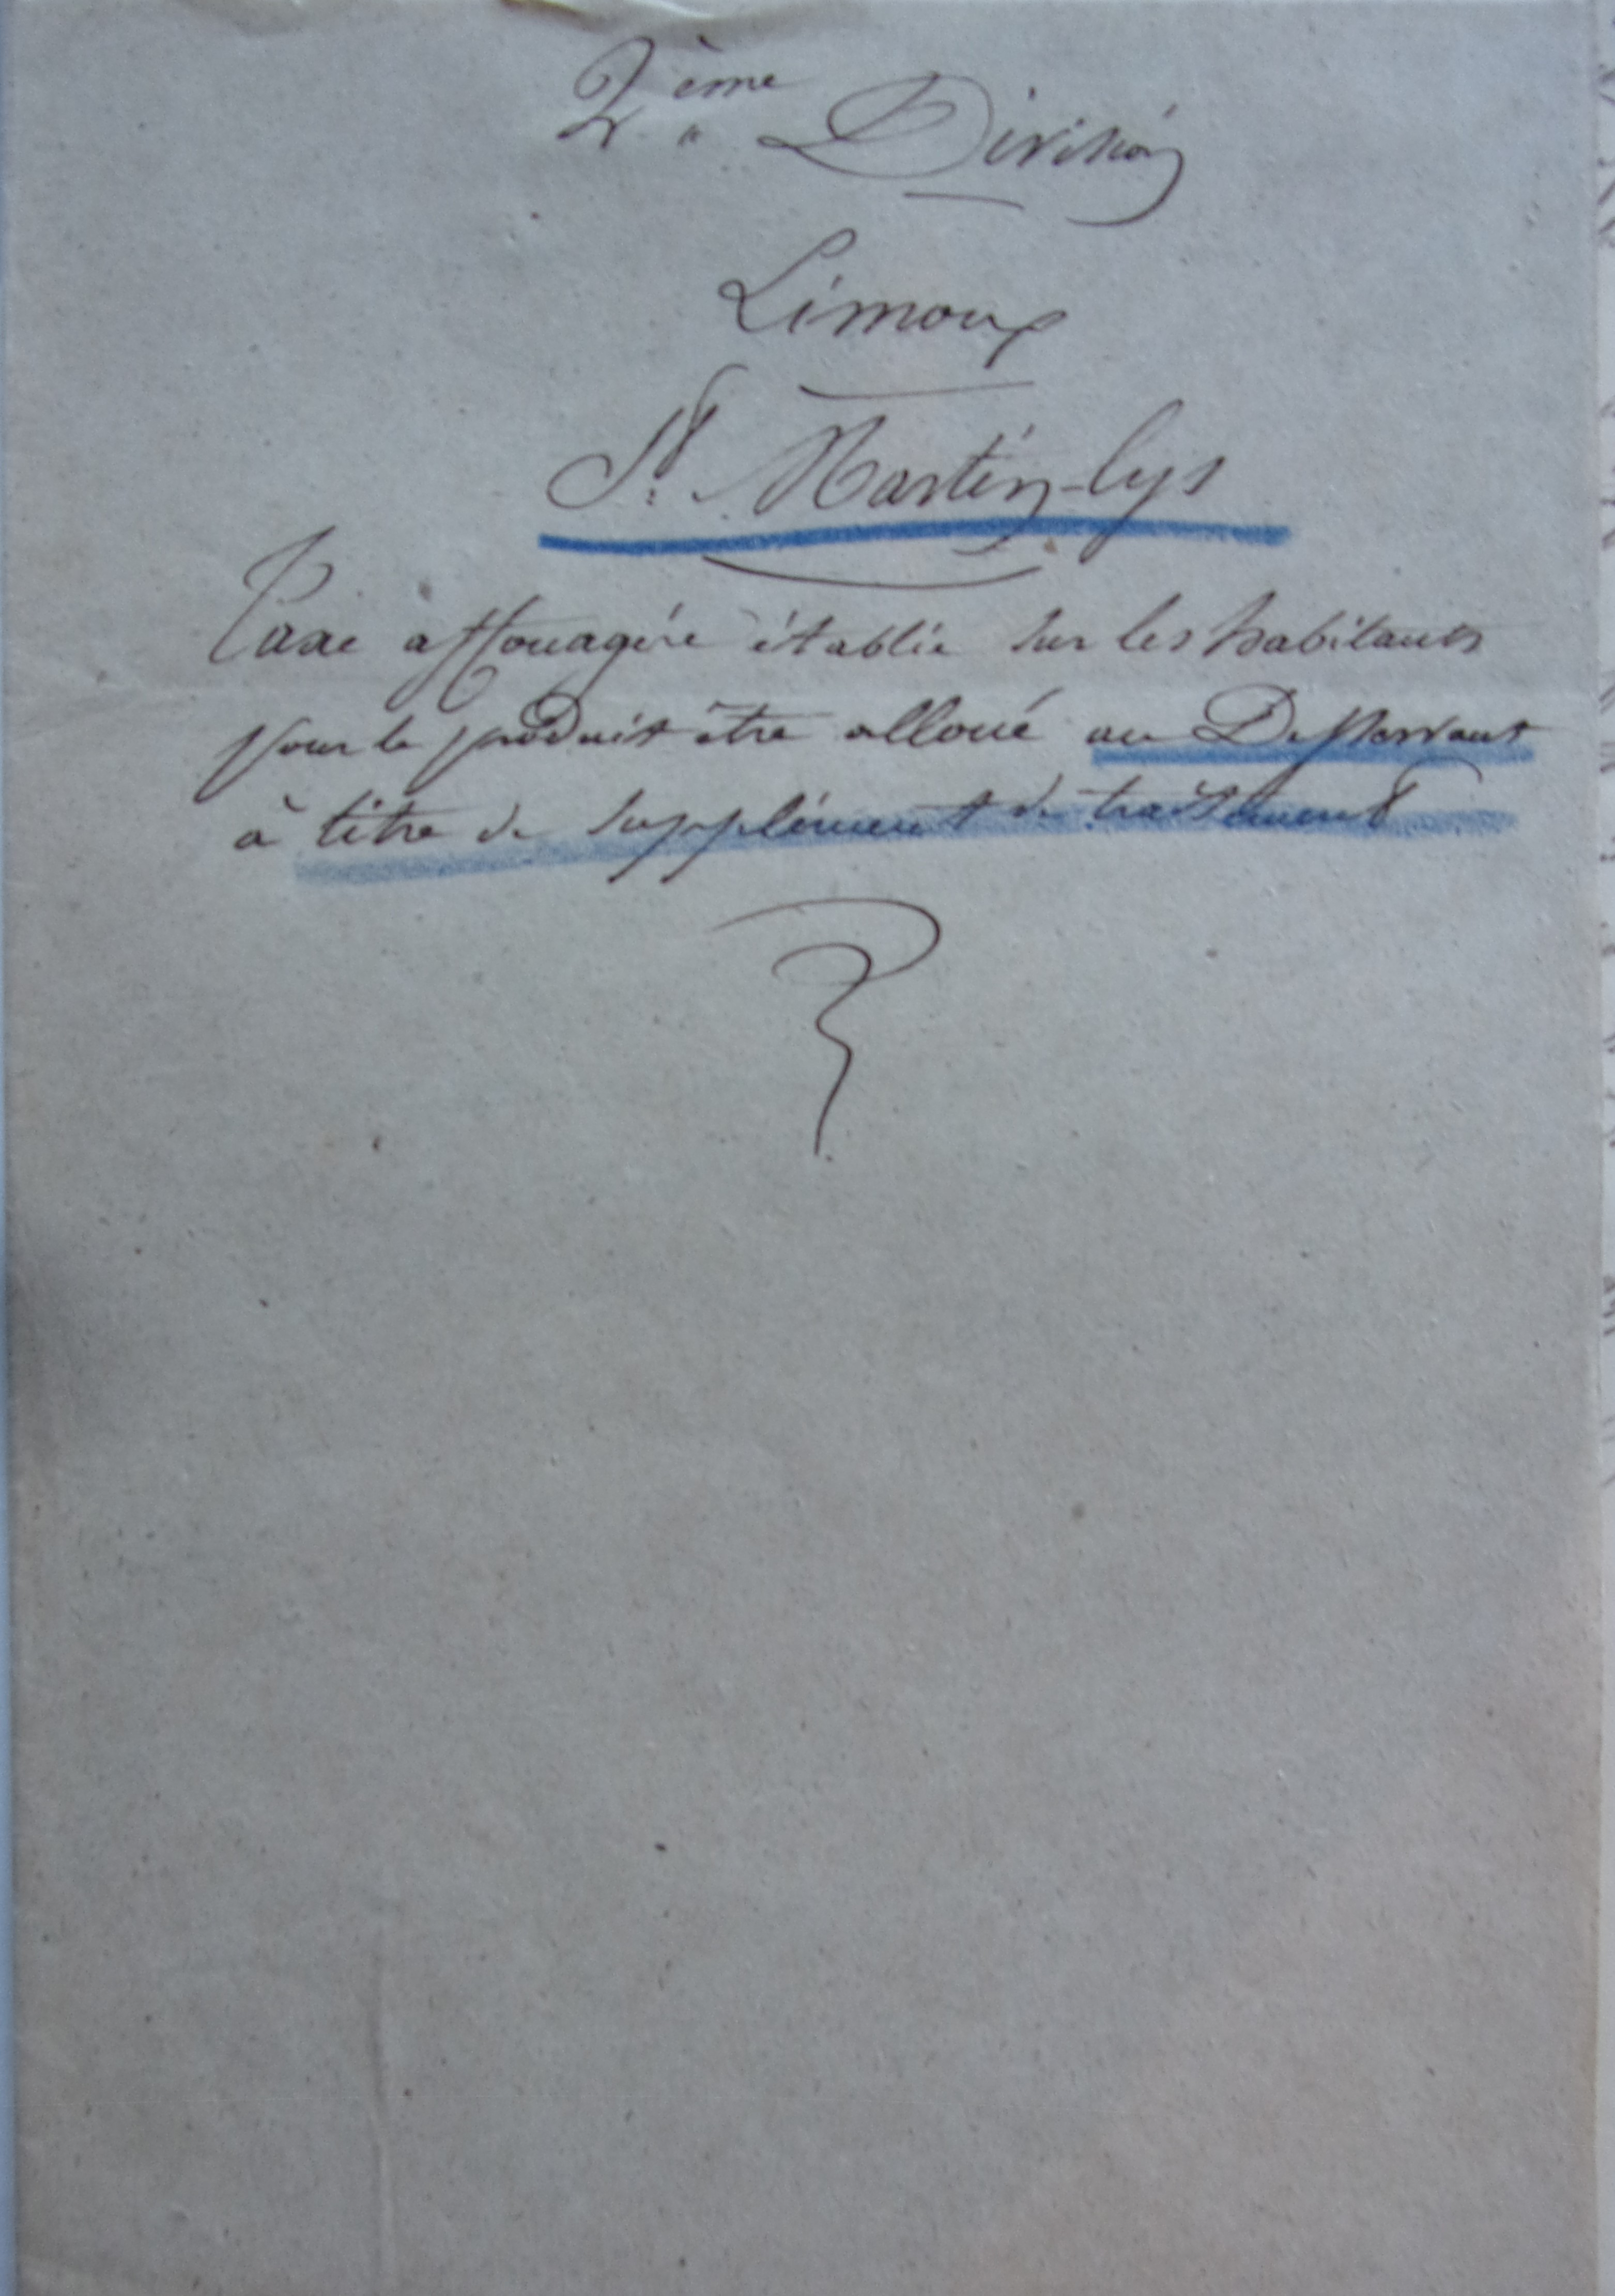 2ème Division
Limoux
St. Martin-lys
Taxe affouagère établie sur les habitants
pour le produit être alloué au Desservant
à titre de supplément de traitement